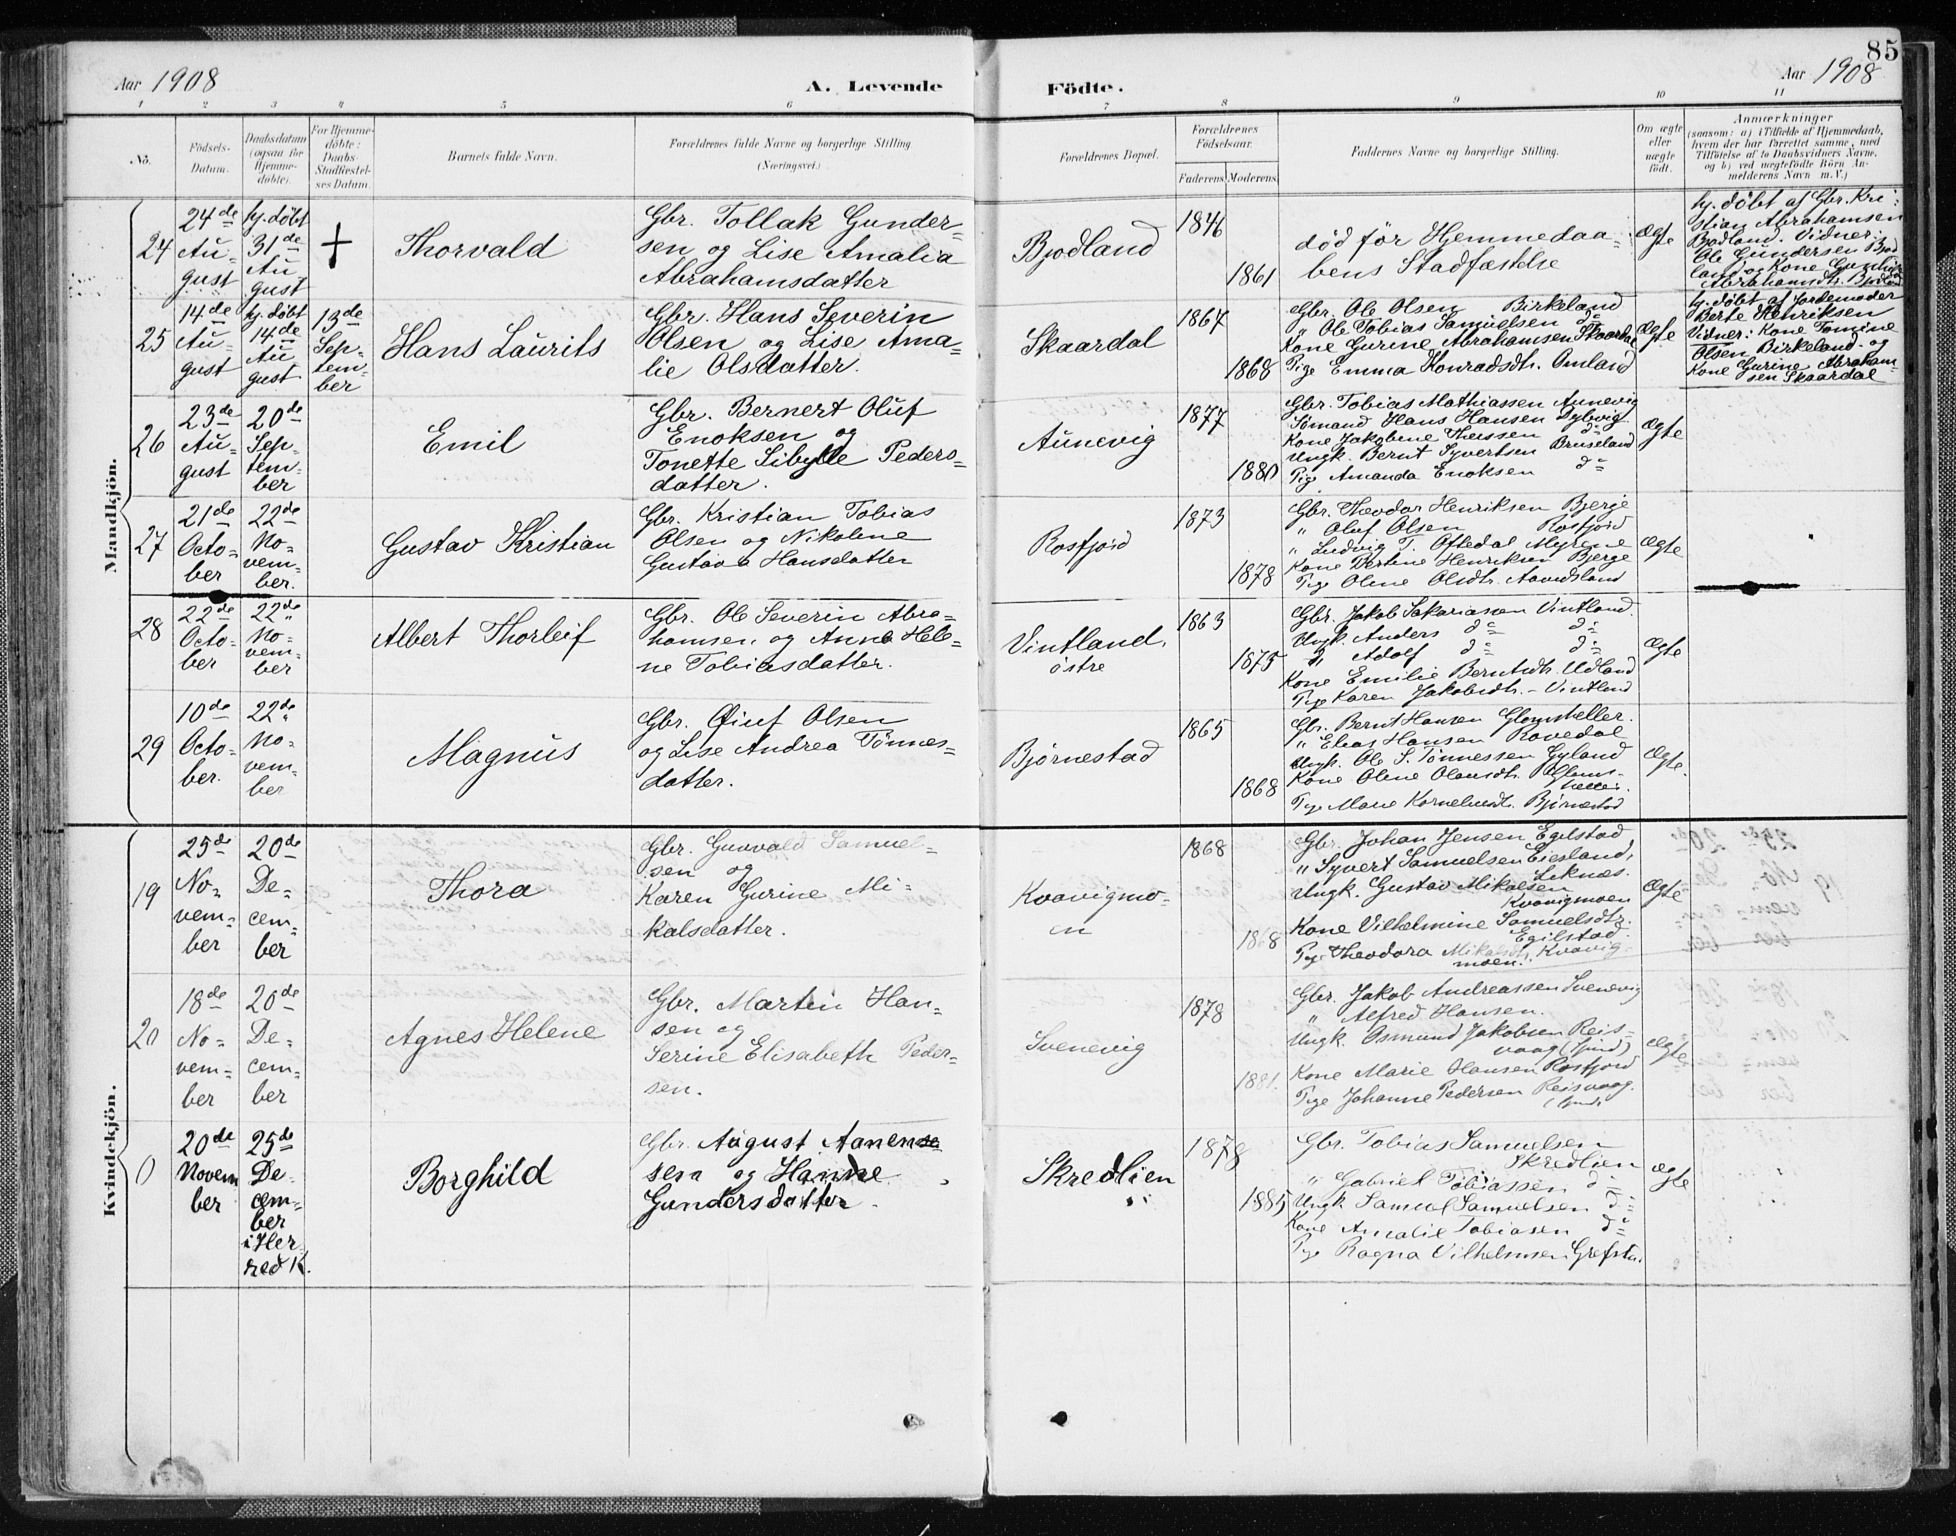 85
Aar 1908
A. Levende
Födte.
Aar 1908
1 2 3 4 5 6 7 8 9 10 11
No.
Födsels-Datum.
Daabsdatum (ogsaa for Hjemme-döbte).
For Hjemme-döbte: Daabs-Stadfæstel-ses Datum.
Barnets fulde Navn.
Forældrenes fulde Navne og borgerlige Stilling
(Næringsvei.)
Forældrenes Bopæl.
Forældrenes Födselsaar.
Faderens. Moderens.
Faddernes Navne og borgerlige Stilling.
Om ægte eller uægte födt.
Anmærkninger
(saasom: a) i Tilfælde af Hjemmedaab,
hvem der har forrettet samme, med
Tilföielse af to Daabsvidners Navne,
og b) ved uegtefödte Börn An-
melderens Navn m. V.)
Mandkjön.
24
24de
Au-
gust
hj. døbt
31de
Au
gust
+
Thorvald
Gbr. Tollak Gunder-
sen og Lise Amalia
Abrahamsdatter
Bjodland
1846
1861
død før Hjemmedaa-
bens Stadfæstelse
Ægte
hj. døbt af Gbr. Kri-
stian Abrahamsen
Bjodland. Vidner:
Ole Gundersen Bjod
land og Kone
Abrahamsdt. Bjodland
25
14de
Au-
gust
hj. døbt
14de
Au
gust
13de
Sep-
tem-
ber
Hans Laurits
Gbr. Hans Severin
Olsen og Lise Ama-
lie Olsdatter.
Skaardal
1867
1868
Gbr. Ole Olsen Birkeland
" Ole Tobias Samuelsen do
Kone Gurine Abrahamsen Skaardal
Pige Emma Konradsdt. Omland
Ægte
hj. døbt af Jordemoder
Berte Henriksen
Vidner: Kone Tomine
Olsen Birkeland og
Kone Gurine Abraham-
sen Skaardal
26
23de
Au-
gust
20de
Sep-
tem-
ber
Emil
Gbr. Bernert Oluf
Enoksen og
Tonette Sibylle Peders-
datter.
Aunevig
1877
1880
Gbr. Tobias Mathiassen Aunevig
Sømand Hans Hansen Dybvig
Kone Jakobine Theissen do
Ungk. Bernt Syvertsen Bruseland
Pige Amanda Enoksen do
Ægte
27
21de
Octo-
ber
22de
No-
vem-
ber.
Gustav Kristian
Gbr. Kristian Tobias
Olsen og Nikoline
Gustava Hansdatter
Rosfjord
1873
1878
Gbr. Theodor Henriksen Bjerge
" Oluf Olsen Rosfjord
" Ludvig T. Oftedal Myrene
Kone Bertine Henriksen Bjerge
Pige Oline Olsdt. Aavidsland
Ægte
28
22de
Octo-
ber
22de
No-
vem-
ber
Albert Thorleif
Gbr. Ole Severin Abra-
hamsen og Anna Hele-
ne Tobiasdatter.
Vintland,
østre
1863
1875
Gbr. Jakob Sakariassen Vintland
Ungk. Anders do do
" Adolf do do
Kone Emilie Berntsdt. Udland
Pige Karen Jakobsdt. - Vintland
Ægte
29
10de
Octo-
ber.
22de
No-
vem-
ber
Magnus
Gbr. Oluf Olsen
og Lise Andrea Tønnes-
datter.
Bjørnestad
1865
1868
Gbr. Bernt Hansen Glomsheller.
" Elias Hansen Rovedal
Ungk. Ole S. Tønnessen Gyland
Kone Oline Olausdt. Gloms-
heller.
Pige Marie Korneliusdt. Bjørnestad
Ægte.
Kvindekjön.
19
25de
No-
vem-
ber
20de
De-
cem-
ber
Thora
Gbr. Gunvald Samuel-
sen og
Karen Gurine Mi-
kalsdatter.
Kvavigmo-
en
1868
1868
Gbr. Johan Jensen Egilstad
" Syvert Samuelsen Eiesland,
Leknes.
Ungk. Gustav Mikalsen
Kvavigmoen
Kone Vilhelmine Samuelsdtr.
Egilstad.
Pige Theodora Mikalsdt. Kvavig-
moen.
Ægte
20
18de
No-
vem-
ber
20de
De-
cem-
ber
Agnes Helene
Gbr. Martin Han-
sen og
Serine Elisabeth Peder-
sen.
Svenevig
1878
1881.
Gbr. Jakob Andreassen Svenevig
" Alfred Hansen.
Ungk. Osmund Jakobsen Reis-
vaag (Spind)
Kone Marie Hansen Rosfjord
Pige Johanne Pedersen Reisvaag.
(Spind)
Ægte
0
20de
Novem
ber
25de
De-
cem-
ber
i Her-
red K.
Borghild
Gbr. August Aanense
sen og Hanne
Gundersdatter.
Skredlien
1878
1885
Gbr. Tobias Samuelsen
Skredlien
" Gabriel Tobiassen do
Ungk Samuel Samuelsen do
Kone Amalie Tobiasen do
Pige Ragna Vilhelmsen Grefstn.
Ægte